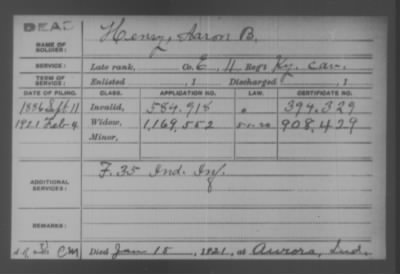 DEAD
NAME OF SOLDIER: Henry, Aaron B.
SERVICE: Late rank, Co. E 11 Reg't Ky. Cav.
TERM OF SERVICE: Enlisted , 1 Discharged , 1
DATE OF FILING. CLASS. APPLICATION NO. LAW. CERTIFICATE NO.
1886 Sept 11 Invalid, 584.918 394.329
1921 Feb 4. Widow, 1,169,552 908,429
Minor,
ADDITIONAL SERVICES: F. 35 Ind. Inf.
REMARKS:
C M Died Jan 15, 1921, at Aurora, Ind.